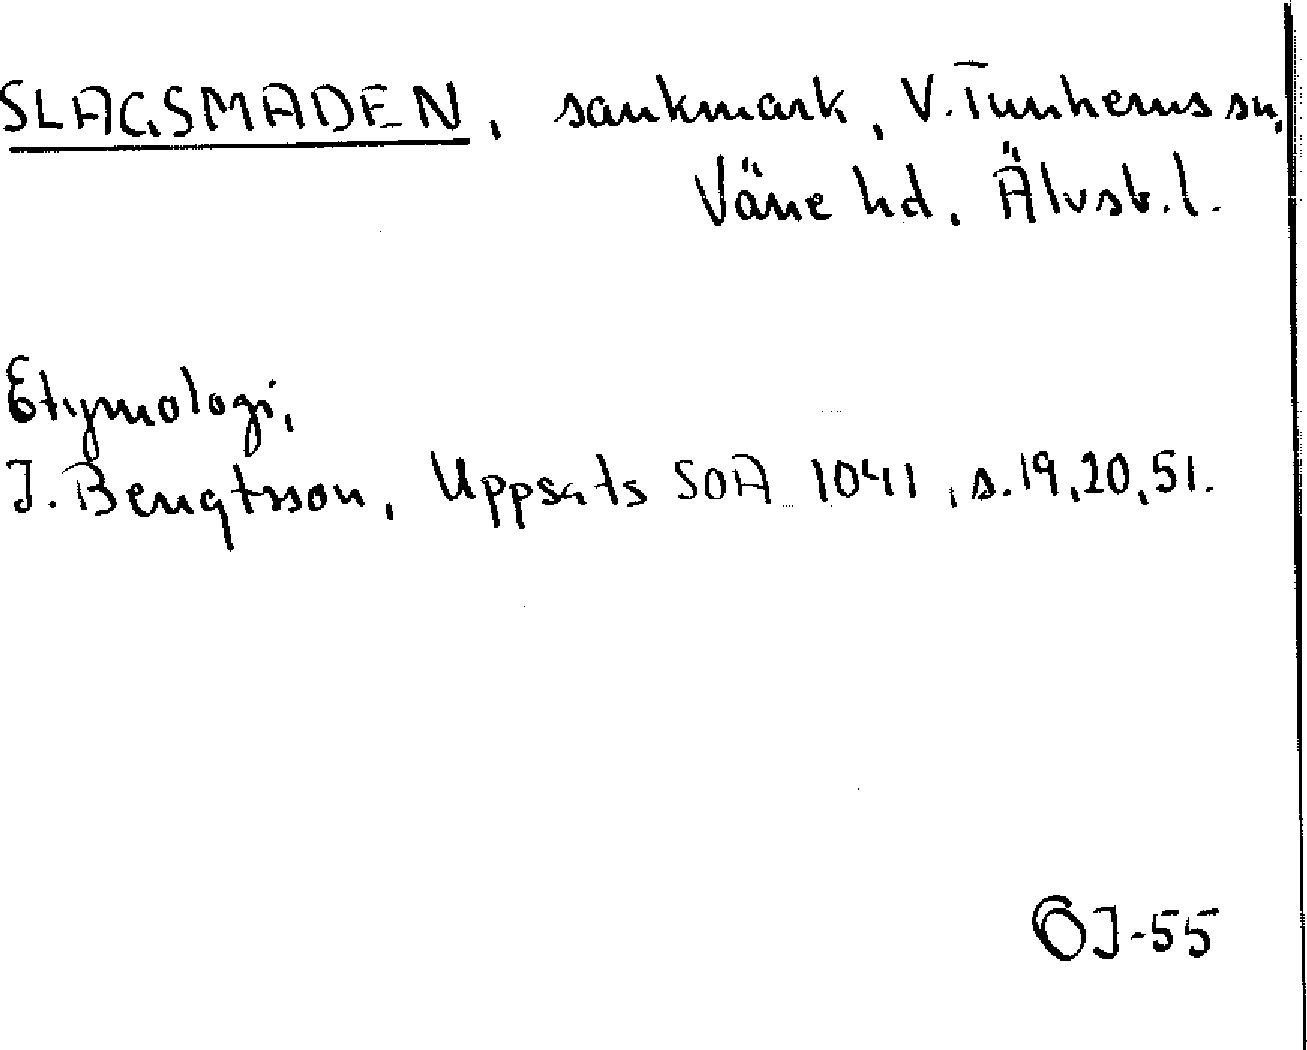 SLAGSMADEN, sankmark, V. Tunhems sn,
Väne hd, Älvsb. l.
Etymologi,
J. Bengtsson, Uppsats SOA 1041, s. 19, 20, 51.
OJ-55